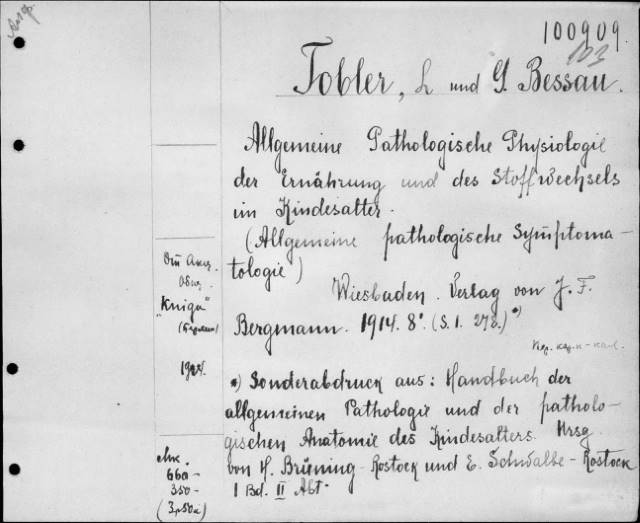 100909
103
Tobler, L und G. Bessau.
Allgemeine Pathologische Physiologie
der Ernährung und des Stoffwechsels
im Kindesalter.
(Allgemeine pathologische Symptoma-
tologie)
Wiesbaden. Verlag von J. F.
Bergmann. 1914. 8°. (S. 1. 278.) *)
"Книга"
(Берлин)
1924.
*) Sonderabdruck aus: Handbuch der
allgemeinen Pathologie und der patholo-
gischen Anatomie des Kindesalters. Hrsg.
von H. Brüning - Rostock und E. Schwalbe - Rostock
I Bd. II Abt.
660-
350-